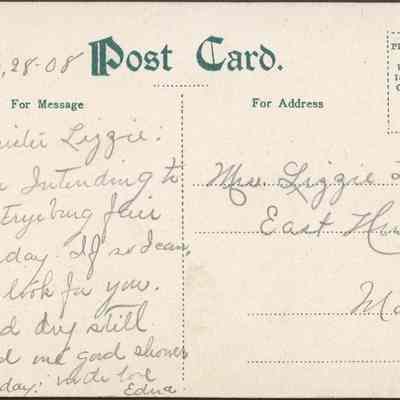 , 28-08
Post Card.
For Message
For Address
Lizzie:
Intending to
Fryeburg Fair
day. If so dear,
look for you.
dry still
me good shower
day: love
Edna.
Mrs. Lizzie
East